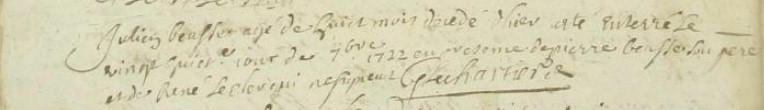 Julien beusser agé de huict mois decedé d'hier a eté enterré le
vingt huict.e jour de 9bre 1722 en presence de pierre beusser son pere
et de René le clerc qui ne signent Lechartier